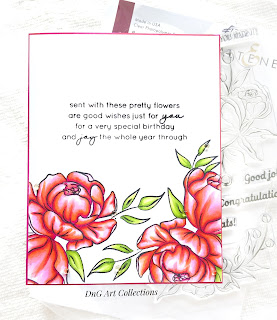 made in USA
sent with these pretty flowers
are good wishes just for you
for a very special birthday
and joy the whole year through
Good jo
Congratulation
DnG Art Collections